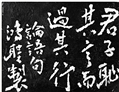 君子恥
其言而
過其行
論語句
鴻聖製